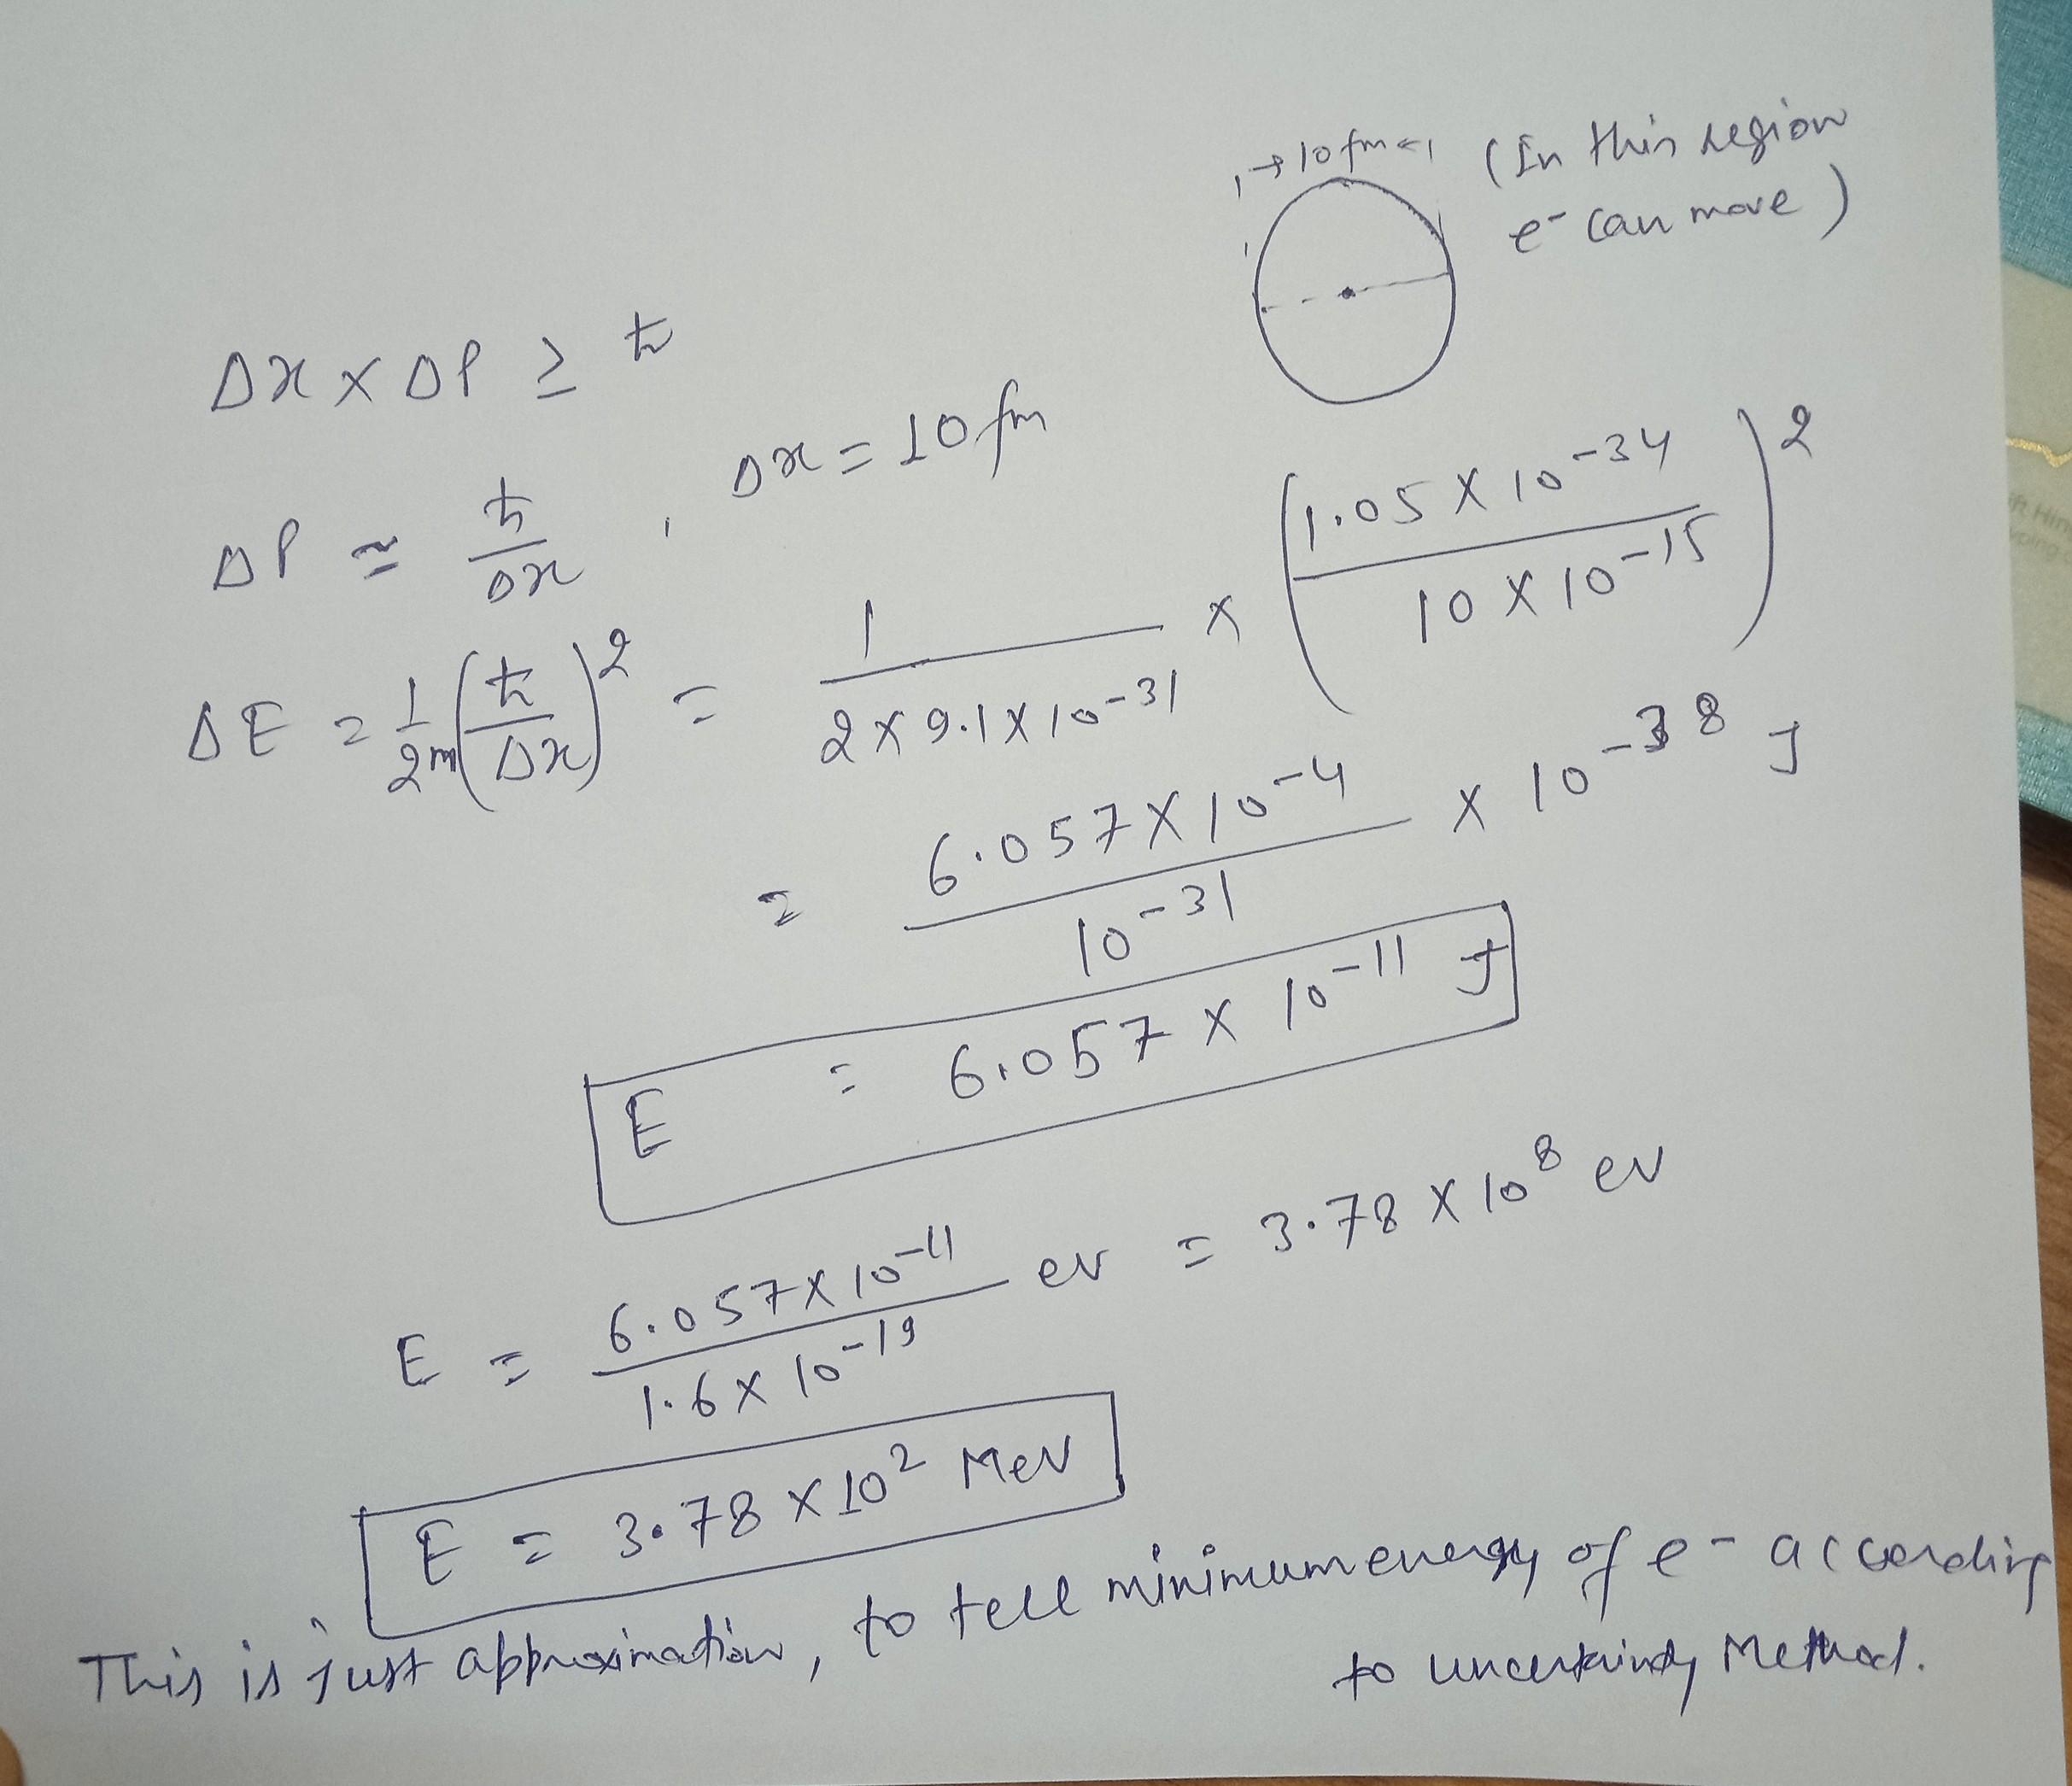 →10 fm← (In this region
e⁻ can move)
Δx × ΔP ≥ ħ
ΔP ≃ ħ/Δx , Δx = 10 fm
ΔE = 1/2m (ħ/Δx)² = 1/(2 × 9.1 × 10⁻³¹) × (1.05 × 10⁻³⁴/10 × 10⁻¹⁵)²
= 6.057 × 10⁻⁴/10⁻³¹ × 10⁻³⁸ J
E = 6.057 × 10⁻¹¹ J
E = 6.057 × 10⁻¹¹/1.6 × 10⁻¹⁹ ev = 3.78 × 10⁸ ev
E = 3.78 × 10² Mev
This is just approximation, to tell minimum energy of e⁻ according
to uncertainty Method.